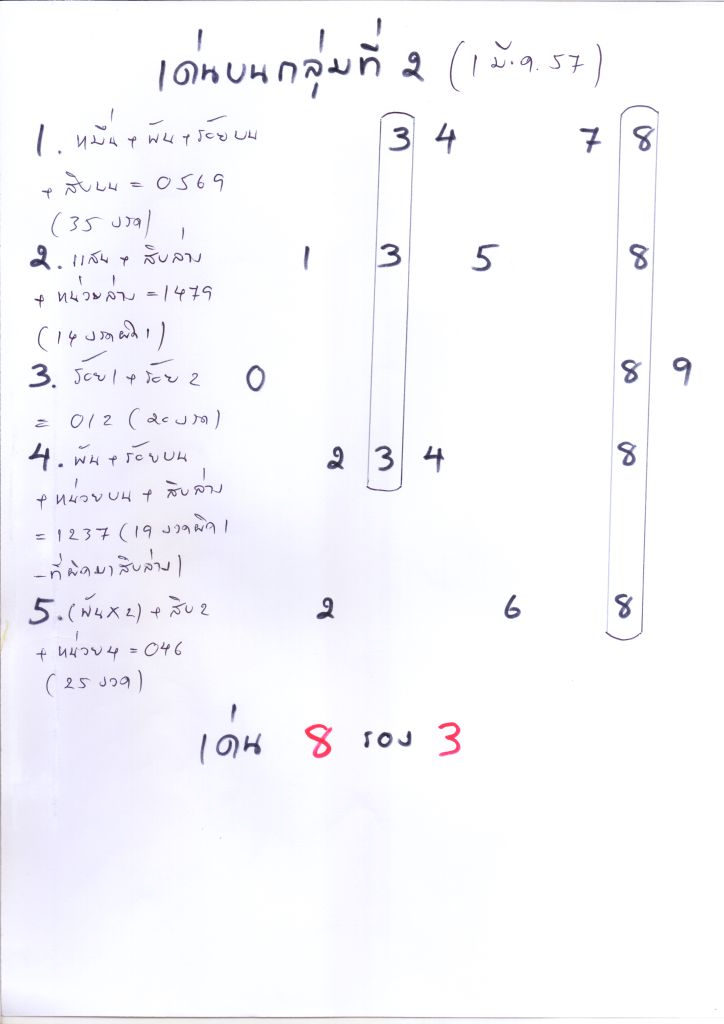 เด่นบนกลุ่มที่ 2 (1 มี.ค. 57)
1. หมื่น + พัน + ร้อยบน 3 4 7 8
+ สิบบน = 0569
(35 งวด)
2. แสน + สิบล่าง 1 3 5 8
+ หน่วยล่าง = 1479
(14 งวดผิด 1)
3. ร้อย 1 + ร้อย 2 0 8 9
= 012 (20 งวด)
4. พัน + ร้อยบน 2 3 4 8
+ หน่วยบน + สิบล่าง
= 1237 (19 งวดผิด 1
- ที่ผิดมาสิบล่าง)
5. (พัน x 2) + สิบ 2 2 6 8
+ หน่วย 4 = 046
(25 งวด)
เด่น 8 รอง 3